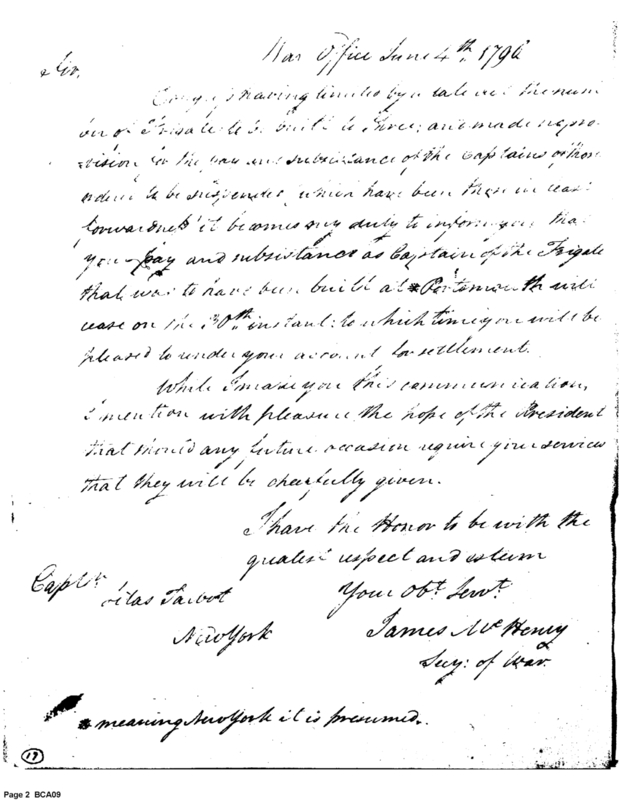 War Office June 4th 1796
Sir,
Congress having limited by a late act the num
ber of Frigates to be built to three; and made no pro
vision for the pay and subsistance of the Captains of those
ordered to be suspended, which have been then in least
forwardness it becomes my duty to inform you, that
your pay and subsistance as Captain of the Frigate
that was to have been built at * Portsmouth will
cease on the 30th instant: to which time you will be
pleased to render your account for settlement.
While I make you this communication,
I mention with pleasure the hope of the President
that should any future occasion require your services
that they will be chearfully given.
I have the Honor to be with the
greatest respect and esteem
Your Obt. Servt.
James McHenry
Secy: of War.
Captn
Silas Talbot
New York
* meaning New York it is presumed.
19
Page 2 BCA09